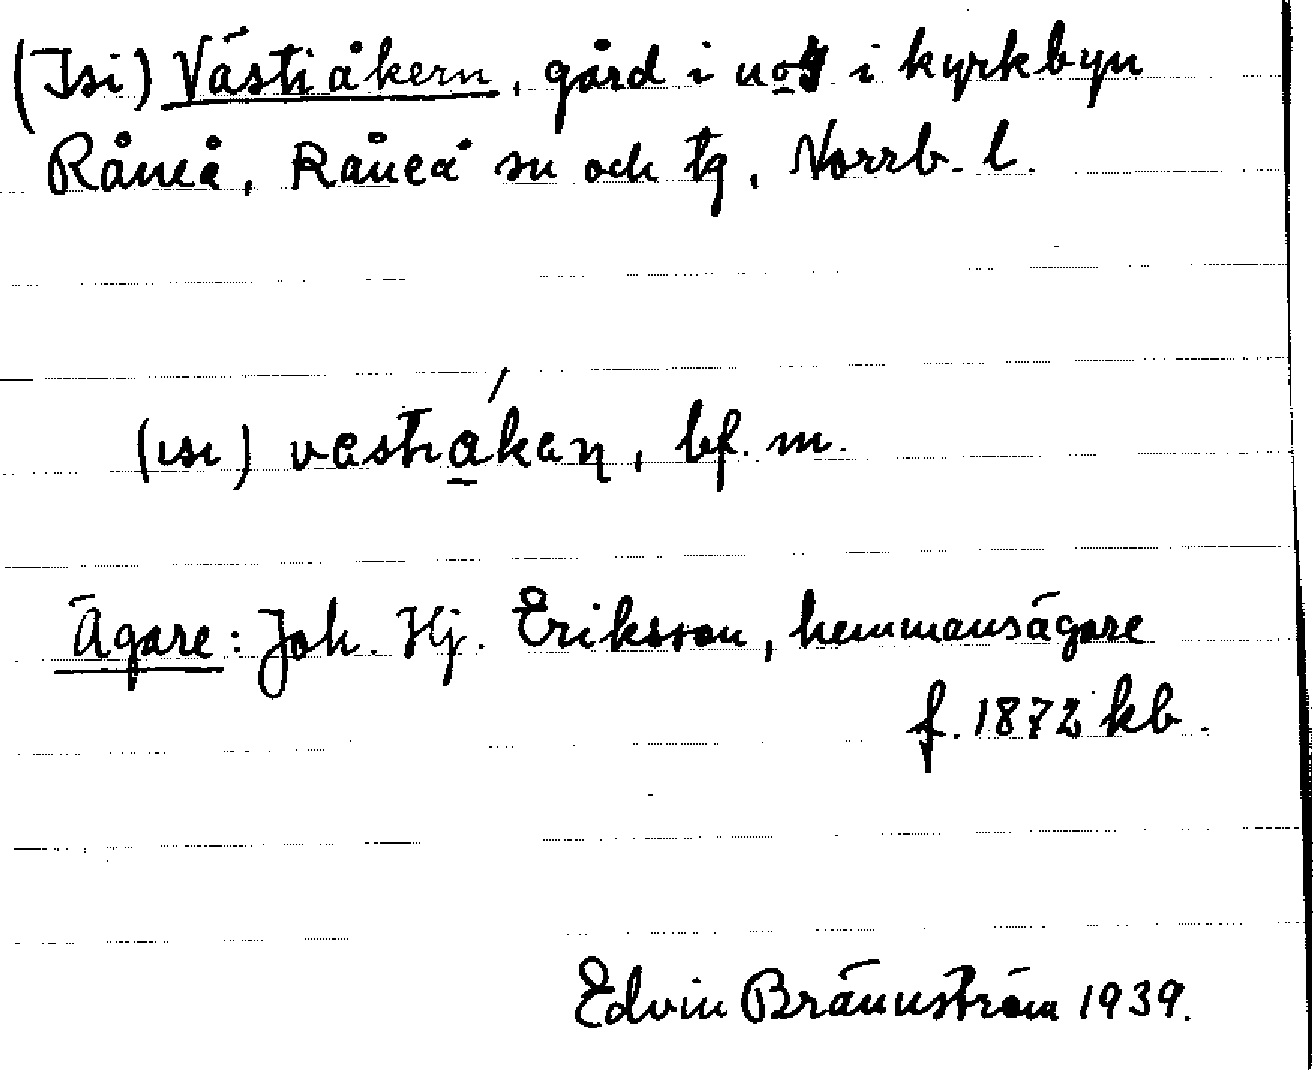 (Isi) Västiåkern, gård i no4 i kyrkbyn
Råneå, Råneå sn och tg, Norrb. l.
(ısı) vastıá̲kaɳ, bf. m.
Ägare: Joh. Hj. Eriksson, hemmansägare
f. 1872 kb.
Edvin Brännström 1939.